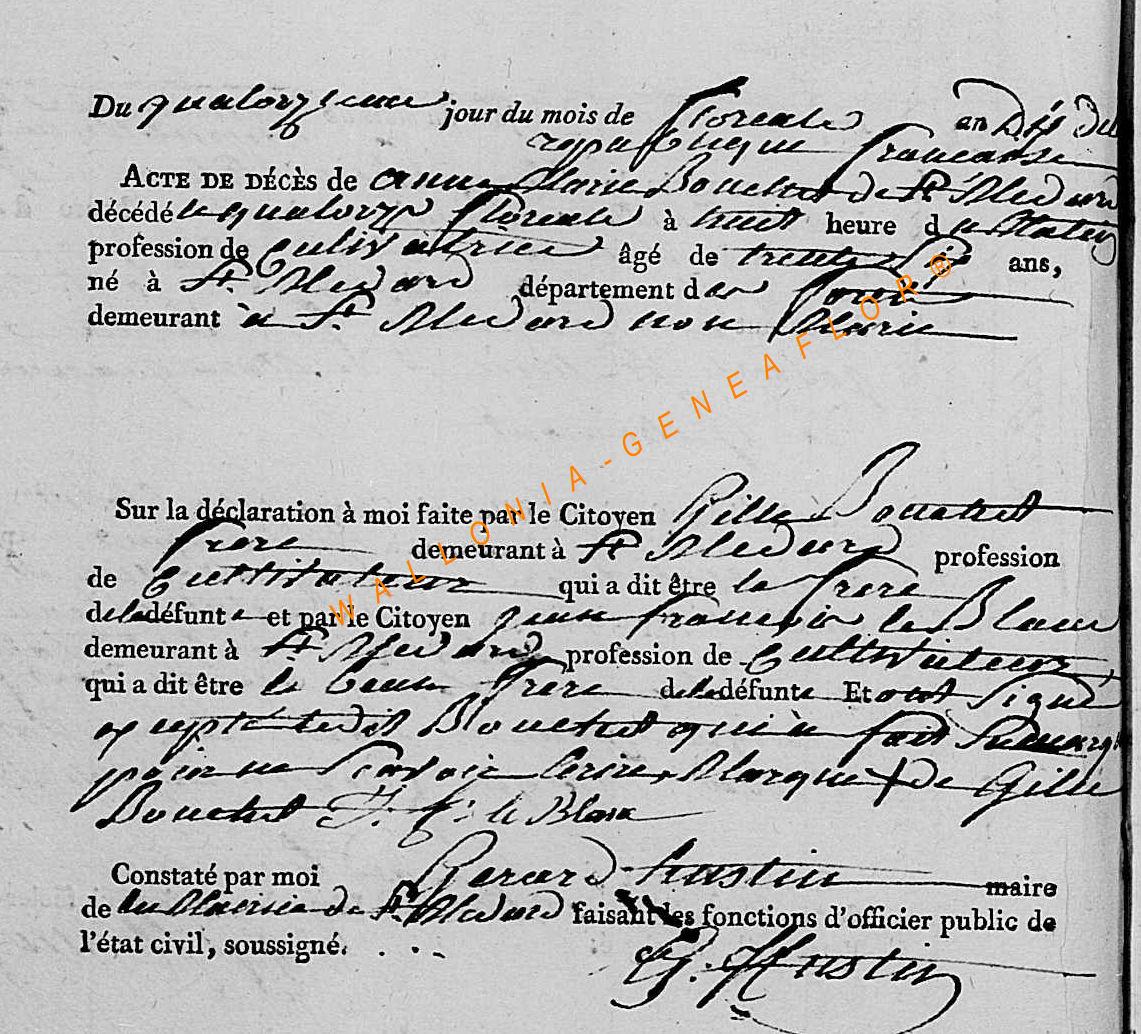 Du quatorzieme jour du mois de floreale an Dix du
republique francaise
ACTE DE DÉCÈS de anne Marie Bouchet de St Medard
décédé le quatorze floreale à huit heure du Matin
profession de Cultivatrice âgé de trente Six ans,
né à St Medard département des foret
demeurant à St Medard non Marie
Sur la déclaration à moi faite par le Citoyen Gille Bouchet
frere demeurant à St Medard profession
de Cultivateur qui a dit être le frere
de la défunte et par le Citoyen jean francois le Blanc
demeurant à St Medard profession de Cultivateur
qui a dit être le beau frere de la défunte Et ont Signé
excepté ledit Bouchet qui a fait Sa marq
pour ne Scavoir Ecrire Marque + de Gille
Bouchet J. f: le Blan
Constaté par moi Gerard hustin maire
de la Mairie de St Medard faisant les fonctions d'officier public de
l'état civil, soussigné.
G. Hustin
WALLONIA-GENEAFLOR®